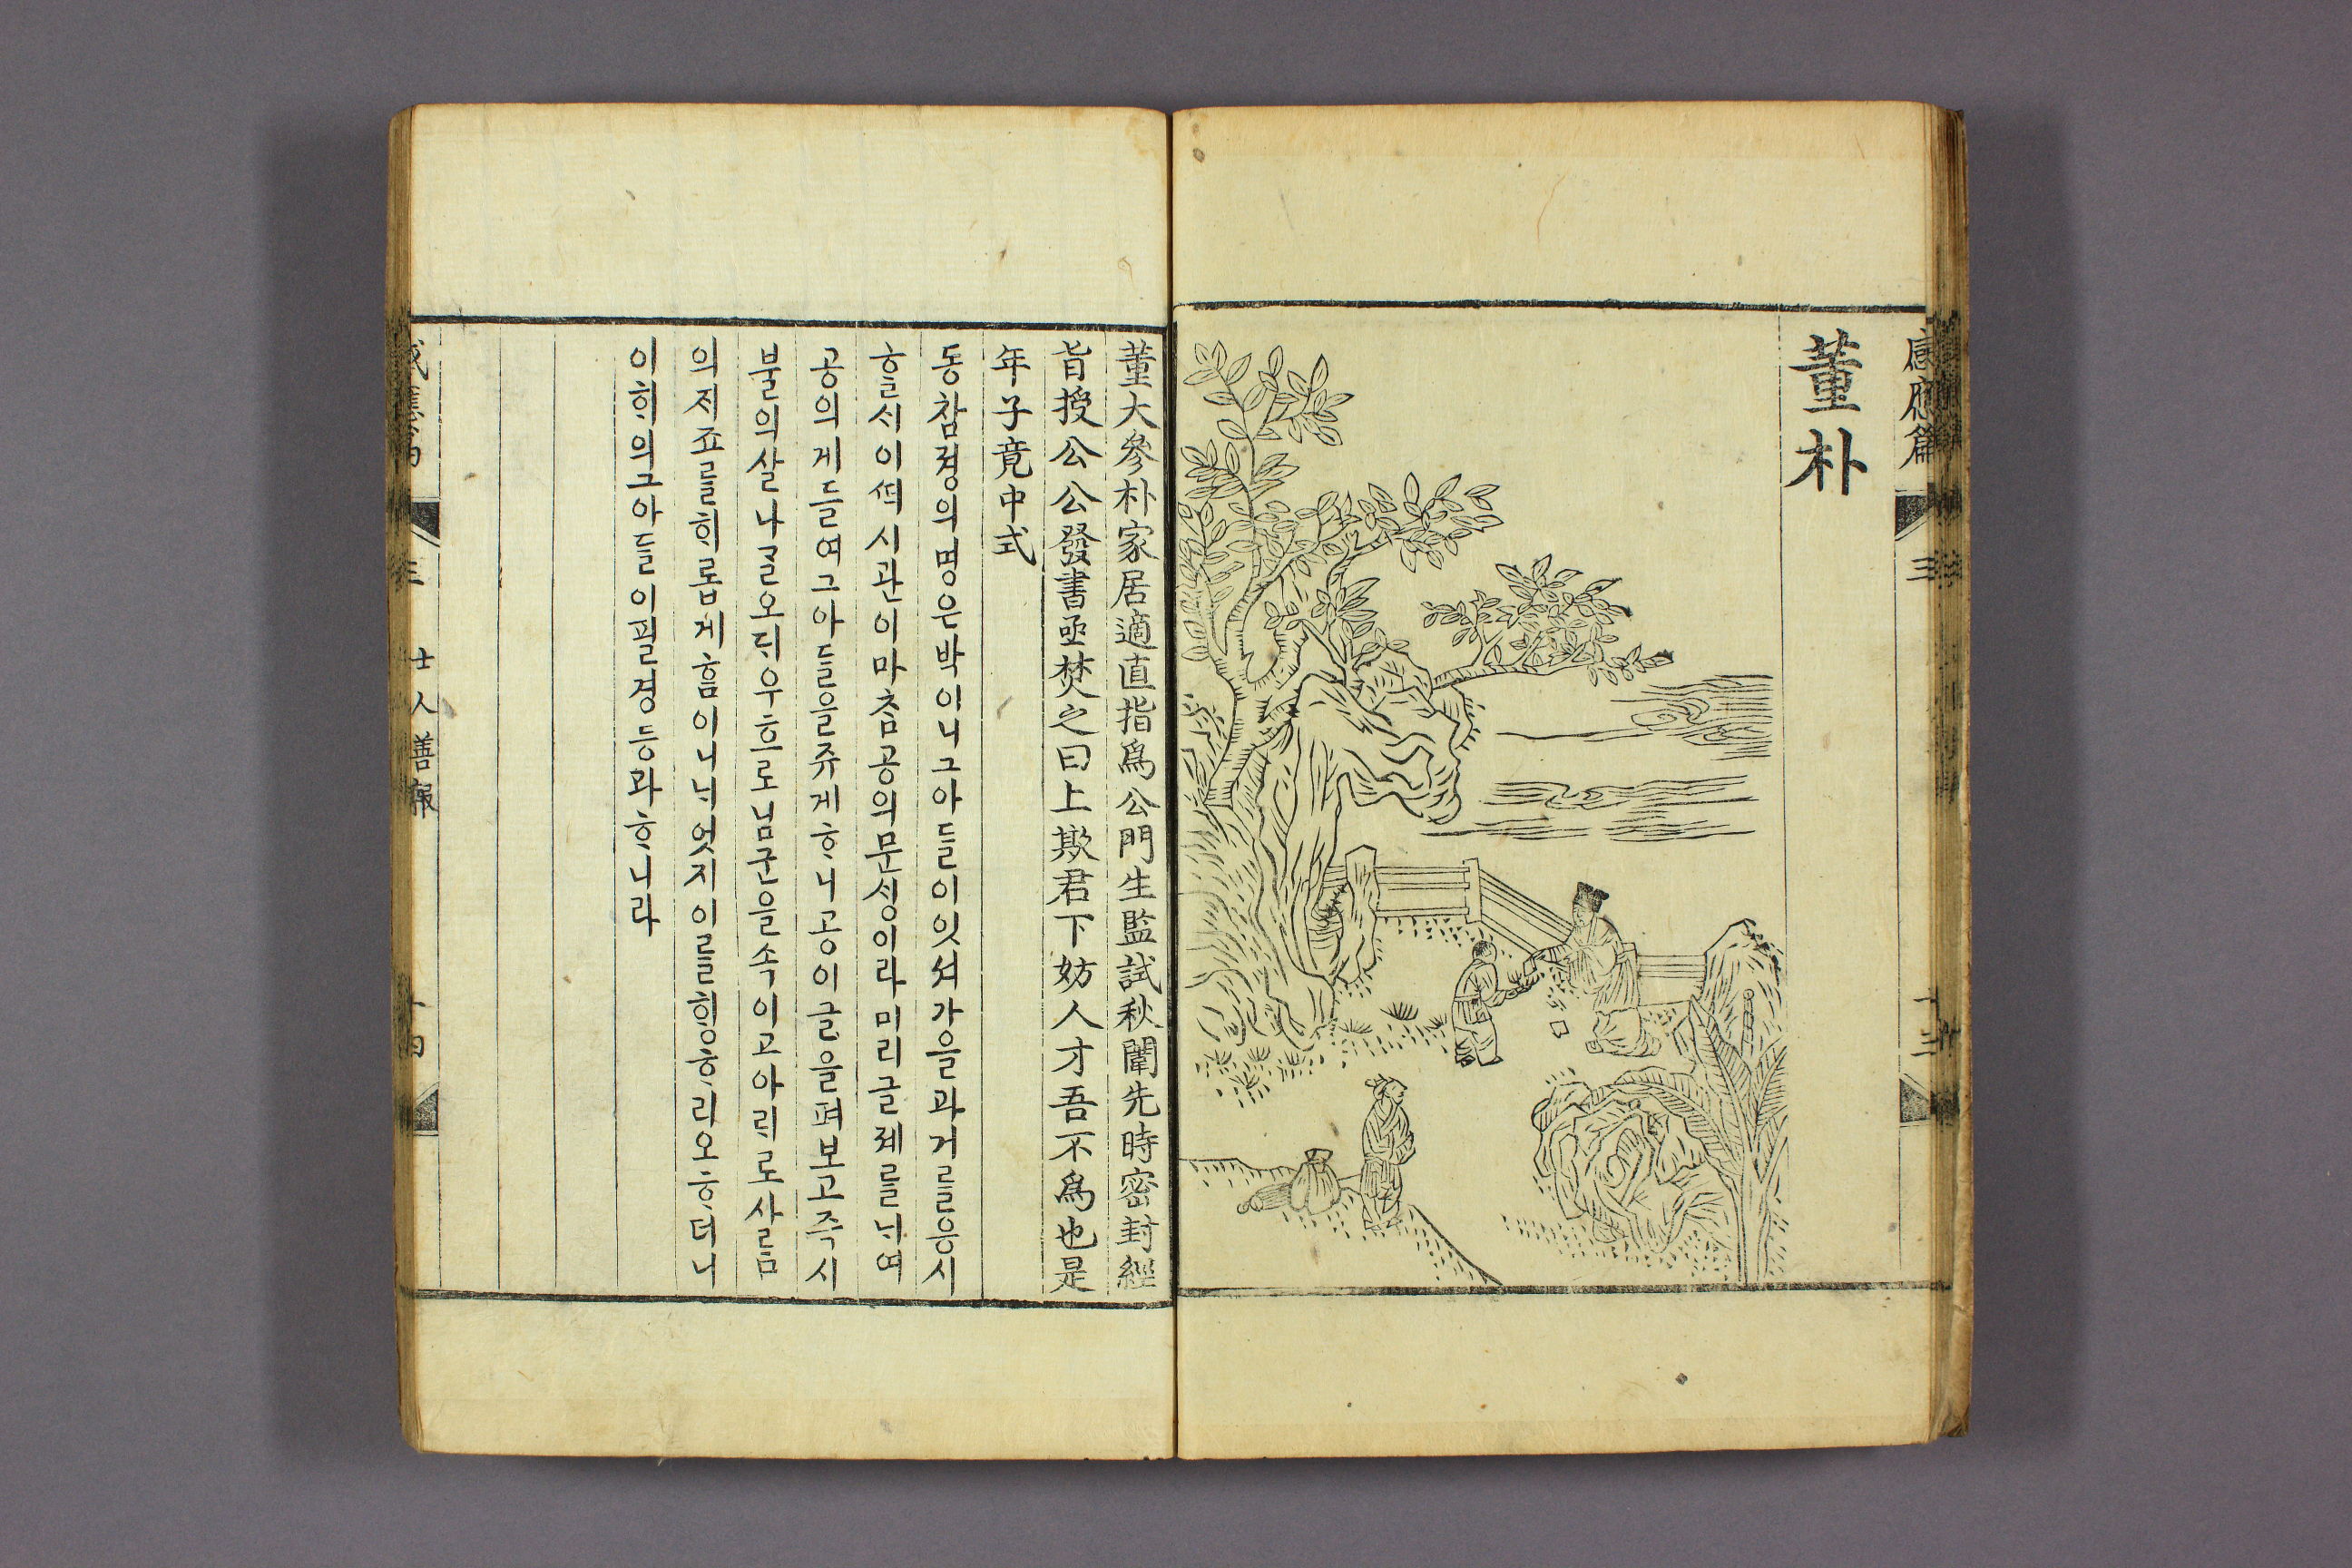 感應篇
三
十三
董朴
董大參朴家居適直指爲公門生監試秋闈先時密封經
旨授公公發書亟焚之曰上欺君下妨人才吾不爲也是
年子竟中式
동참졍의명은박이니그아들이잇셔가을과거를응시
ᄒᆞᆯᄉᆡ이ᄯᅢ시관이마ᄎᆞᆷ공의문ᄉᆡᆼ이라미리글졔를ᄂᆡ여
공의게들여그아들을쥬게ᄒᆞ니공이글을펴보고즉시
불의살나ᄀᆞᆯ오ᄃᆡ우흐로님군을속이고아ᄅᆡ로사ᄅᆞᆷ
의ᄌᆡ죠를ᄒᆡ롭게ᄒᆞᆷ이니ᄂᆡ엇지이를ᄒᆡᆼᄒᆞ리오ᄒᆞ더니
이ᄒᆡ의그아들이필경등과ᄒᆞ니라
三
士人善報
十四